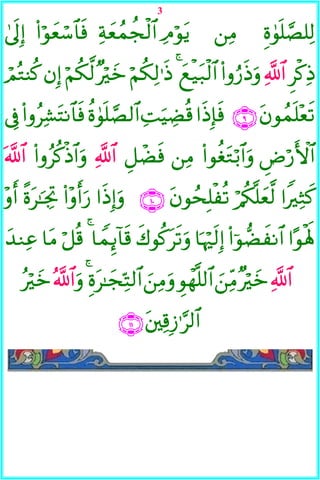 3
لِلصَّلَوٰةِ مِن يَوْمِ ٱلْجُمُعَةِ فَٱسْعَوْا۟ إِلَىٰ
ذِكْرِ ٱللَّهِ وَذَرُوا۟ ٱلْبَيْعَ ۚ ذَٰلِكُمْ خَيْرٌ لَّكُمْ إِن كُنتُمْ
تَعْلَمُونَ ٩ فَإِذَا قُضِيَتِ ٱلصَّلَوٰةُ فَٱنتَشِرُوا۟ فِى
ٱلْأَرْضِ وَٱبْتَغُوا۟ مِن فَضْلِ ٱللَّهِ وَٱذْكُرُوا۟ ٱللَّهَ
كَثِيرًا لَّعَلَّكُمْ تُفْلِحُونَ ١٠ وَإِذَا رَأَوْا۟ تِجَٰرَةً أَوْ
لَهْوًا ٱنفَضُّوٓا۟ إِلَيْهَا وَتَرَكُوكَ قَآئِمًا ۚ قُلْ مَا عِندَ
ٱللَّهِ خَيْرٌ مِّنَ ٱللَّهْوِ وَمِنَ ٱلتِّجَٰرَةِ ۚ وَٱللَّهُ خَيْرُ
ٱلرَّٰزِقِينَ ١١